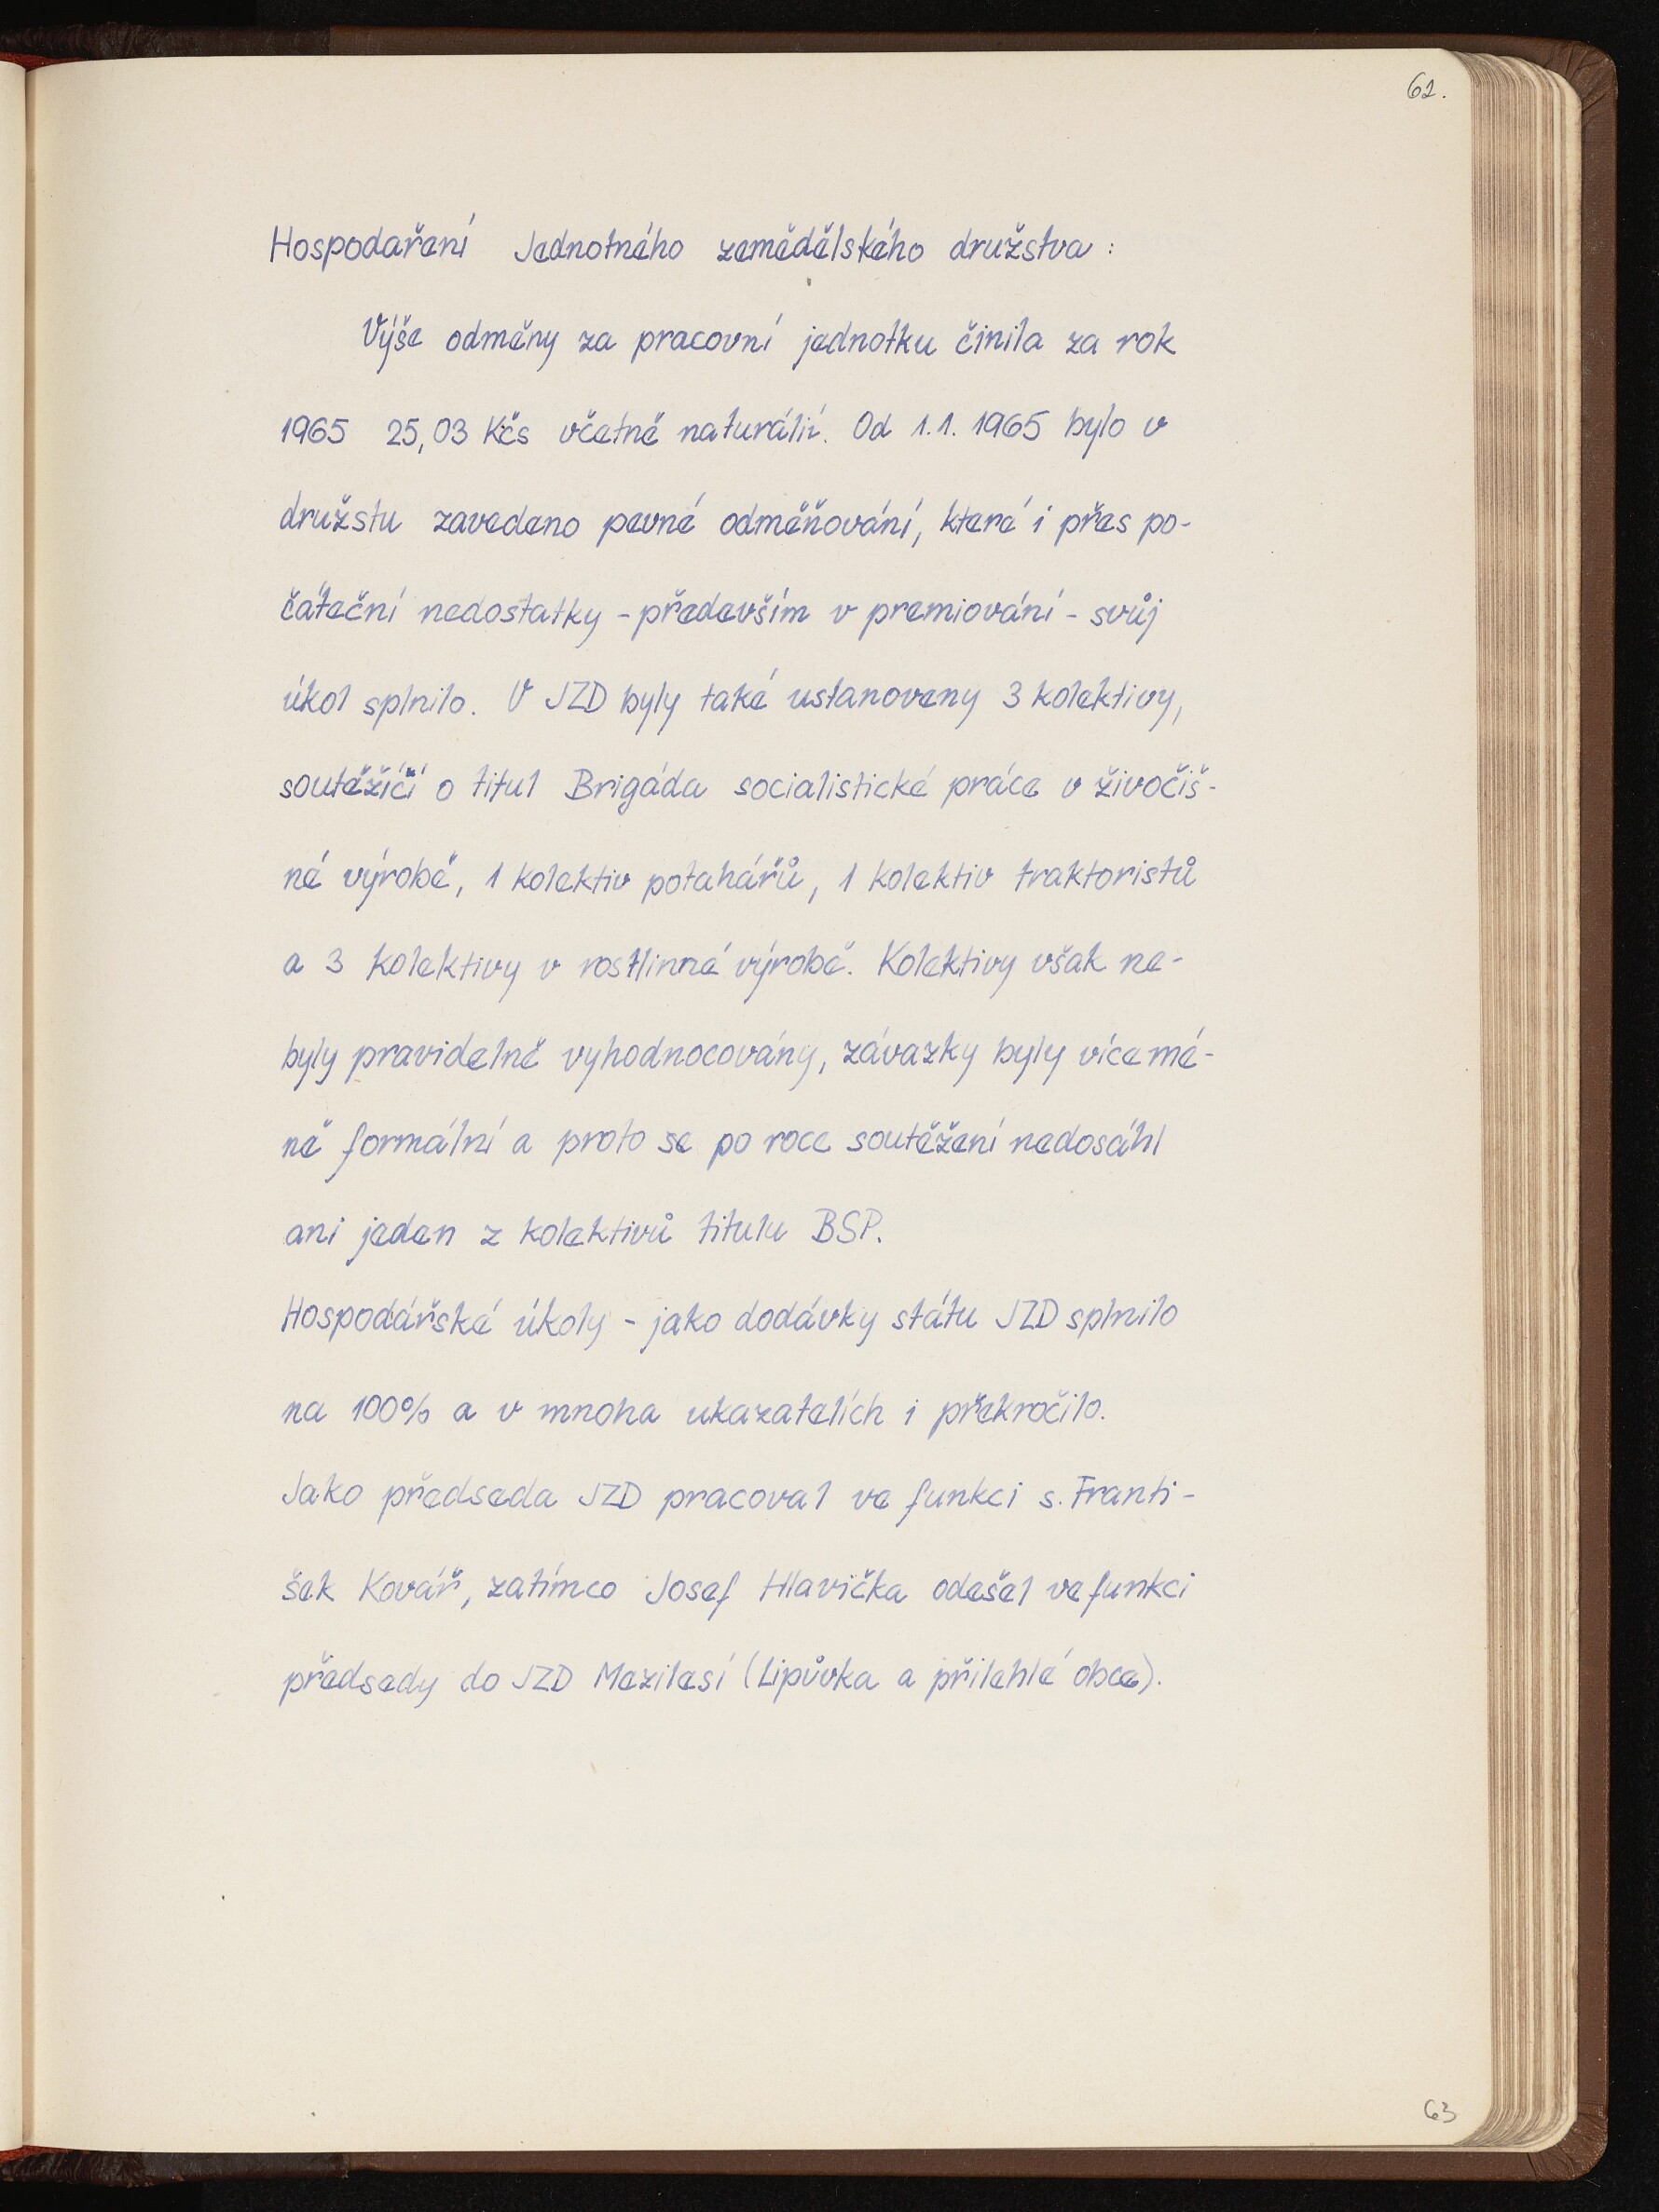 62.
Hospodaření Jednotného zemědělského družstva :
Výše odměny za pracovní jednotku činila za rok
1965 25,03 Kčs včetně naturálií. Od 1.1. 1965 bylo v
družstu zavedeno pevné odměňování, které i přes po-
čáteční nedostatky - především v premiování - svůj
úkol splnilo. V JZD byly také ustanoveny 3 kolektivy,
soutěžící o titul Brigáda socialistické práce v živočiš-
né výrobě, 1 kolektiv potahářů, 1 kolektiv traktoristů
a 3 kolektivy v rostlinné výrobě. Kolektivy však ne-
byly pravidelně vyhodnocovány, závazky byly vícemé-
ně formální a proto se po roce soutěžení nedosáhl
ani jeden z kolektivů titulu BSP.
Hospodářské úkoly - jako dodávky státu JZD splnilo
na 100% a v mnoha ukazatelích i překročilo.
Jako předseda JZD pracoval ve funkci s. Franti-
šek Kovář, zatímco Josef Hlavička odešel ve funkci
předsedy do JZD Mezilesí (Lipůvka a přilehlé obce).
63